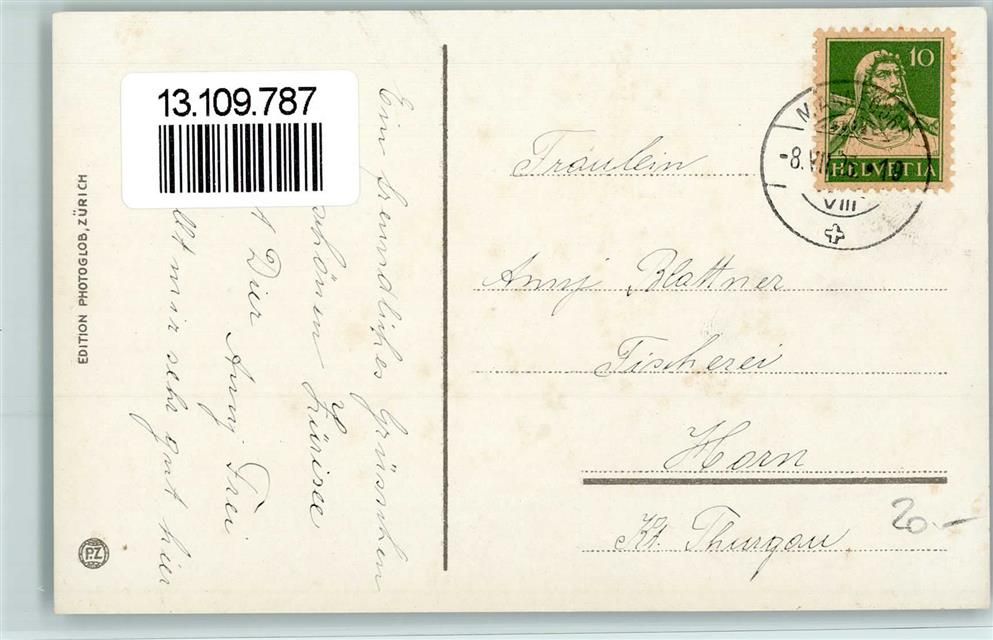 13.109.787
EDITION PHOTOGLOB, ZÜRICH
PZ
Ein freundliches Grüsschen
schönen Zürisee
Dir Anny Frei
mir sehr gut hier
10
HELVETIA
-8.VII
-19
VIII
Fräulein
Anny Blattner
Fischerei
Horn
Kt. Thurgau
20.-